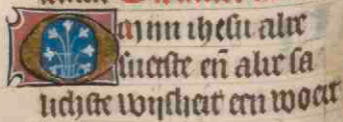 O mijn ihesu alre
suetste en̄ alre sa
lichste wijsheit een woert